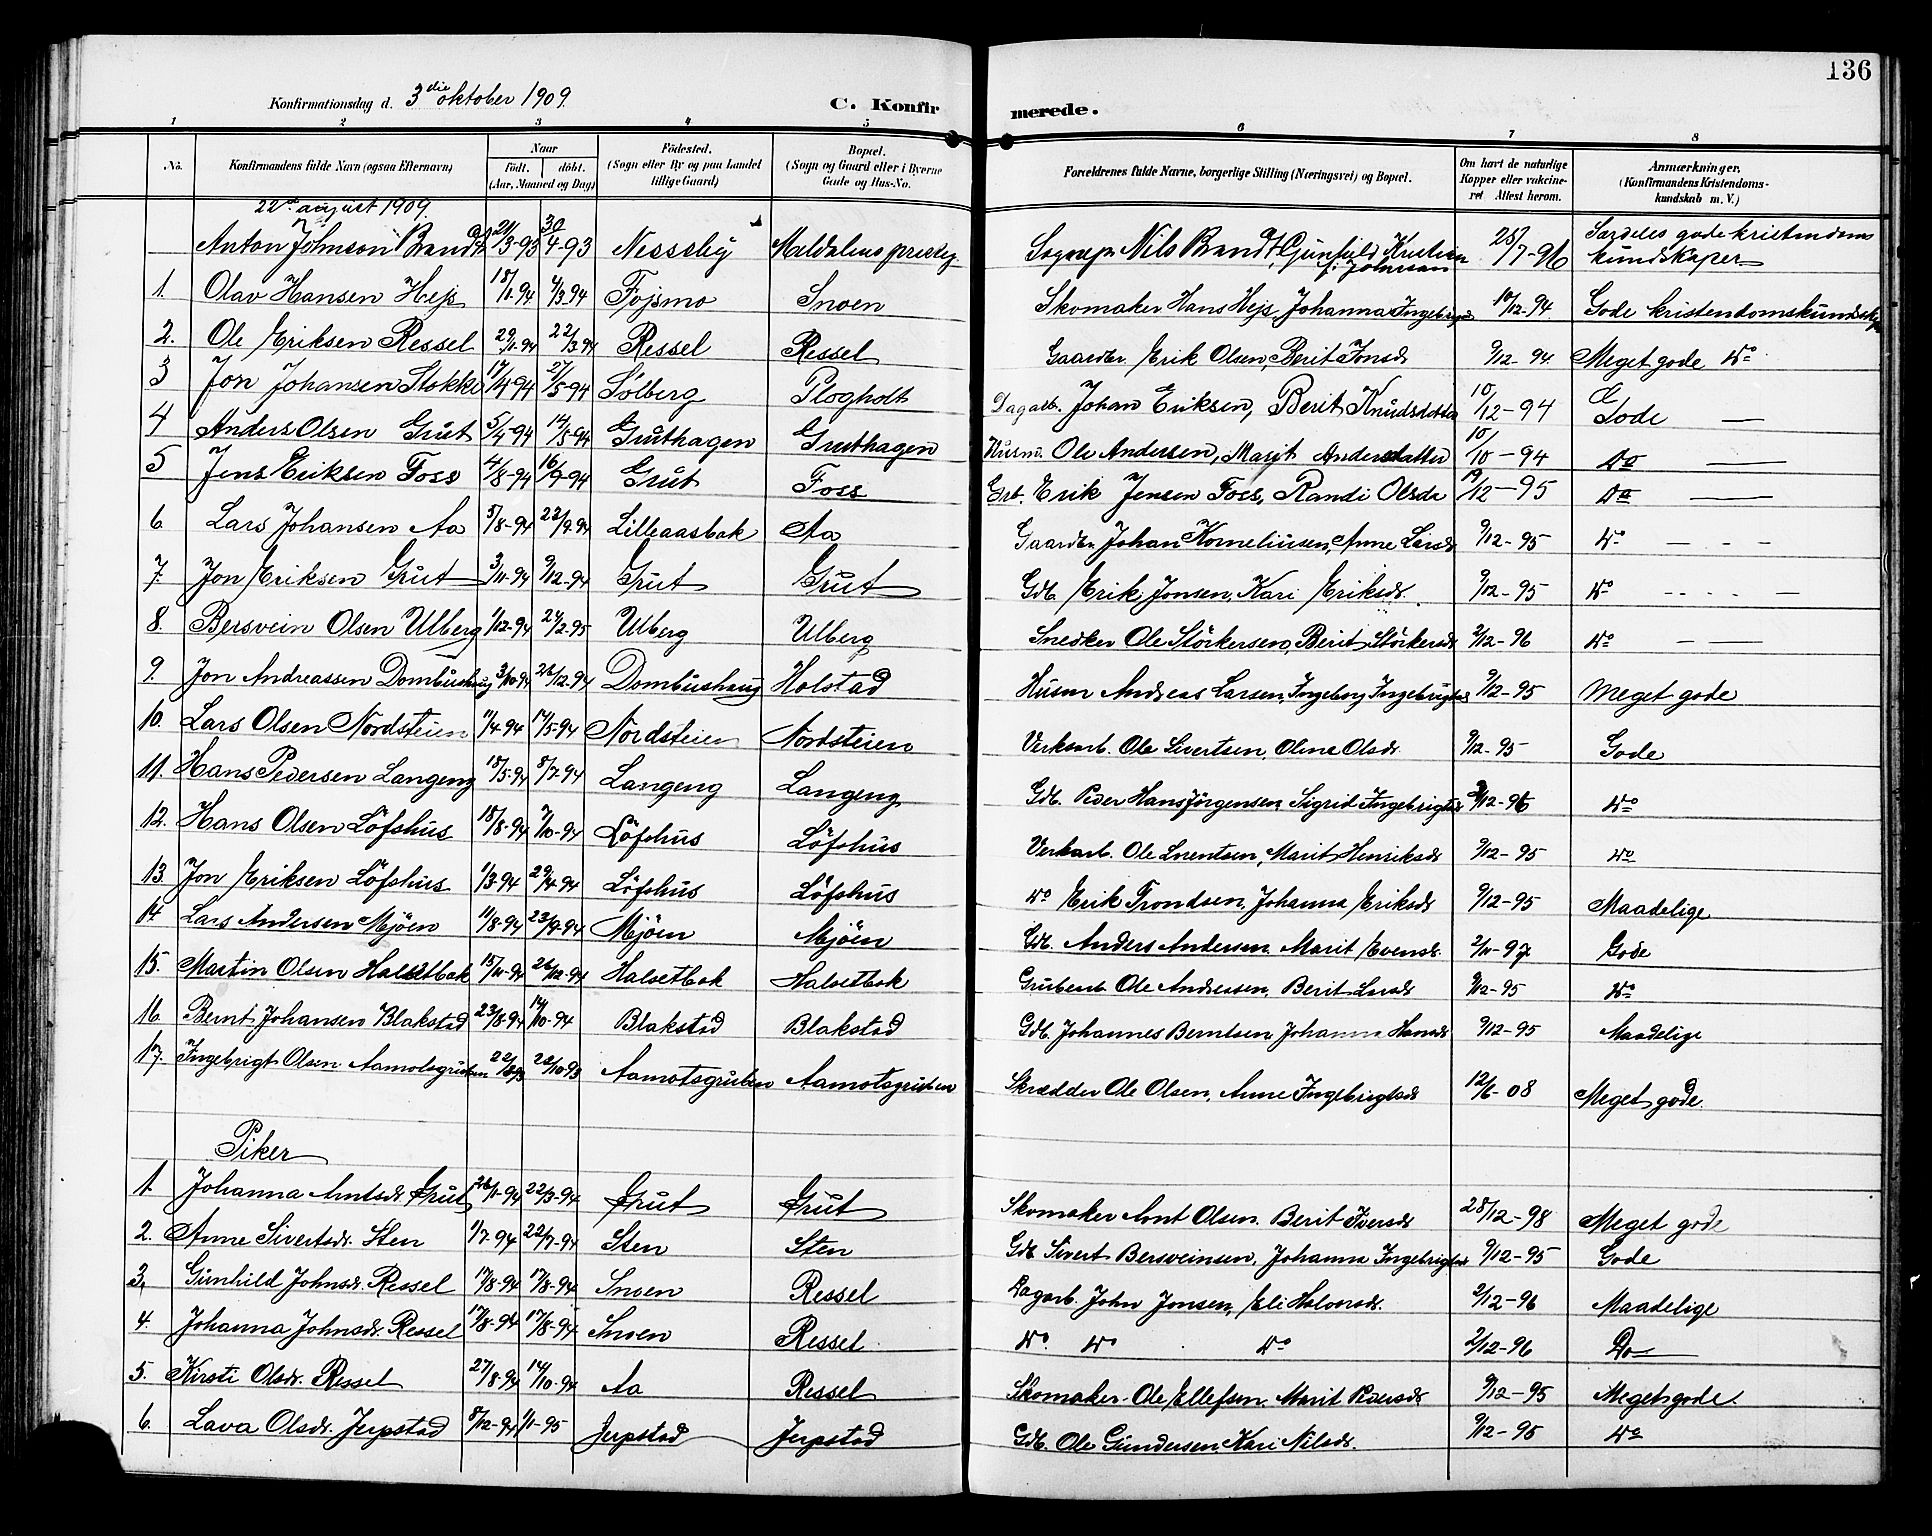 136
Konfirmationsdag d. 3die oktober 1909.
C. Konfirmerede.
1 2 3 4 5 6 7 8
No. Konfirmandens fulde Navn (ogsaa Efternavn) Naar födt. döbt. (Aar, Maaned og Dag) Födested. (Sogn eller By og paa Landet tillige Gaard) Bopæl. (Sogn og Gaard eller i Byerne Gade og Hus-No. Forældrenes fulde Navne, borgerlige Stilling (Næringsvei) og Bopæl. Om havt de naturlige Kopper eller vakcineret Attest herom. Anmærkninger. (Konfirmandens Kristendomskundskab m. V.)
22de august 1909.
Anton Johnson Brandt 21/3-93 30/4-93 Nesseby Meldalens presteg. Sogngpr Nils Brandt, Gunhild Kristine f. Johnson 25/7-96 Særdeles gode kristendomskundskaper
1. Olav Hansen Hejs 18/1-94 4/3 94 Fojsmo Snoen Skomaker Hans Hejs, Johanna Ingebrigsd 10/12-94 Gode kristendomskundsk
2. Ole Eriksen Ressel 29/1-94 22/3 94 Ressel Ressel Gaardbr Erik Olsen, Berit Jonsd 9/12-94 Meget gode Do
3 Jon Johansen Stokke 17/4-94 27/5-94 Solberg Plogholt Dagarb. Johan Eriksen, Berit Knudsdatter 10/12-94 Gode —
4 Anders Olsen Grut 5/4-94 14/5-94 Gruthagen Gruthagen Husm. Ole Andersen, Marit Andersdatter 10/10-94 Do —
5 Jens Eriksen Foss 4/8-94 16/9-94 Grut Foss Grb. Erik Jensen Foss, Randi Olsda 19/12-95 Do —
6 Lars Johansen Aa 5/8-94 23/9-94 Lilleaasbak Aa Gaardbr. Johan Korneliusen, Anne Larsd 9/12-95 Do — - -
7. Jon Eriksen Grut 3/11-94 9/12-94 Grut Grut Gdb. Erik Jonsen, Kari Eriksdr. 9/12-95 Do - - - —
8. Bersvein Olsen Ulberg 1/12-94 24/2-95 Ulberg Ulberg Snedker Ole Störkersen, Berit Störkersdr 2/12-96 Do - —
9. Jon Andreassen Dombushaug 3/10 94 26/12-94 Dombushaug Holstad Husm Andreas Larsen, Ingeborg Ingebrigtsd 9/12-95 Meget gode
10. Lars Olsen Nordsteien 11/4-94 14/5-94 Nordsteien Nordsteien Verksarb. Ole Sivertsen, Oline Olsdr. 9/12-95 Gode
11. Hans Pedersen Langeng 18/5-94 8/7-94 Langeng Langeng Gdb. Peder Hansjörgensen, Sigrid Ingebrigtsd /12-96 Do
12. Hans Olsen Löfshus 18/8-94 7/10-94 Löfshus Löfshus Verkarb. Ole Lorentsen, Marit Henriksdr 9/12-95 Do
13. Jon Eriksen Löfshus 1/3-94 29/4-94 Löfshus Löfshus Do Erik Trondsen, Johanna Eriksdr 9/12-95 Maadelige
14 Lars Andersen Mjöen 11/8-94 23/9-94 Mjöen Mjöen Gdb. Anders Andersen, Marit Evensdr. 2/11-97 Gode
15. Martin Olsen Halsetbak 15/11-94 26/12-94 Halsetbak Halsetbak Grubearb Ole Andreasen, Berit Larsdr 9/12-95 Do
16. Bernt Johansen Blakstad 23/8-94 14/10-94 Blakstad Blakstad Gdb. Johannes Berntsen, Johanna Hansdr 9/12-95 Maadelige
17. Ingebrigt Olsen Aamotsgruben 22/8 93 22/10-93 Aamotsgruben Aamotsgruben Skrædder Ole Olsen, Anne Ingebrigtsdr 12/6-08 Meget gode.
Piker
1. Johanna Arntsdr. Grut 26/1-94 22/3-94 Grut Grut Skomaker Arnt Olsen, Berit Iversdr 28/12-98 Meget gode
2. Anne Sivertsdr. Sten 1/7-94 22/7-94 Sten Sten Gdb Sivert Bersveinsen, Johanna Ingebrigtsd 9/12-95 Gode
3, Gunhild Johnsdr. Ressel 17/8-94 17/8-94 Snoen Ressel Dagarb. John Jonsen, Eli Halvorsdr. 2/12-96 Maadelige
4. Johanna Johnsdr. Ressel 17/8-94 17/8-94 Snoen Ressel Do Do Do 2/12-96 Do
5. Kirsti Olsdr. Ressel 27/8-94 14/10-94 Aa Ressel Skomaker Ole Ellefsen, Marit Pedersdr 9/12-95 Meget gode
6. Lava Olsdr. Jerpstad 8/12-94 1/1-95 Jerpstad Jerpstad Gdb. Ole Gundersen, Kari Nilsdr. 9/12-95 Do